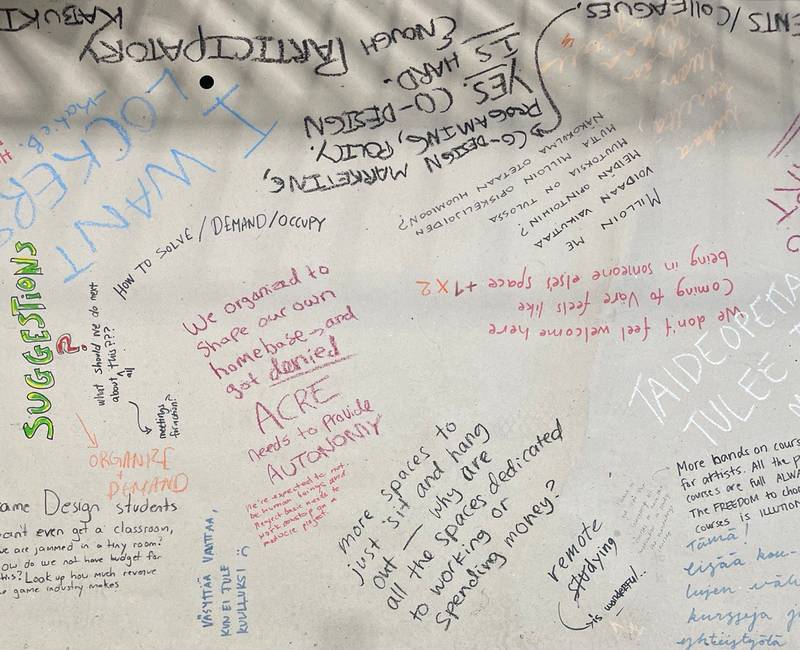 ENTS / COLLEAGUES.
ENOUGH PARTICIPATORY
KABUKI
IS
HARD.
YES. CO-DESIGN
CO-DESIGN MARKETING,
PROGAMING, POLICY.
I WANT
LOCKERS
MILLOIN ME
VOIDAAN VAIKUTTAA
MEIDÄN OPINTOIHIN?
MUUTOKSIA ON TULOSSA
MUTTA MILLOIN OPISKELIJOIDEN
NÄKÖKULMA OTETAAN HUOMIOON?
HOW TO SOLVE / DEMAND / OCCUPY
SUGGESTIONS
?
what should we do next
about all this???
meetings
for action?
ORGANIZE
+
DEMAND
We organized to
shape our own
homebase → and
got denied
ACRE
needs to provide
AUTONOMY
we're expected to not
be human beings and
We don't feel welcome here
Coming to Väre feels like
being in someone else's space
+1 x 2
TAIDEOPETTA
TULEE
ame Design students
can't even get a classroom,
we are jammed in a tiny room?
ow do we not have budget for
this? Look up how much revenue
e game industry makes
VÄSYTTÄÄ VAATTAA,
KUN EI TULE
KUULLUKSI :(
more spaces to
just sit and hang
out — why are
all the spaces dedicated
to working or
spending money?
remote
studying
is wonderful..
More bands on cours
for artists. All the p
courses are full ALWA
The FREEDOM to choo
courses is ILLUTION
Tämä!
lisää kou-
lujen väli
kursseja ja
yhteistyötä